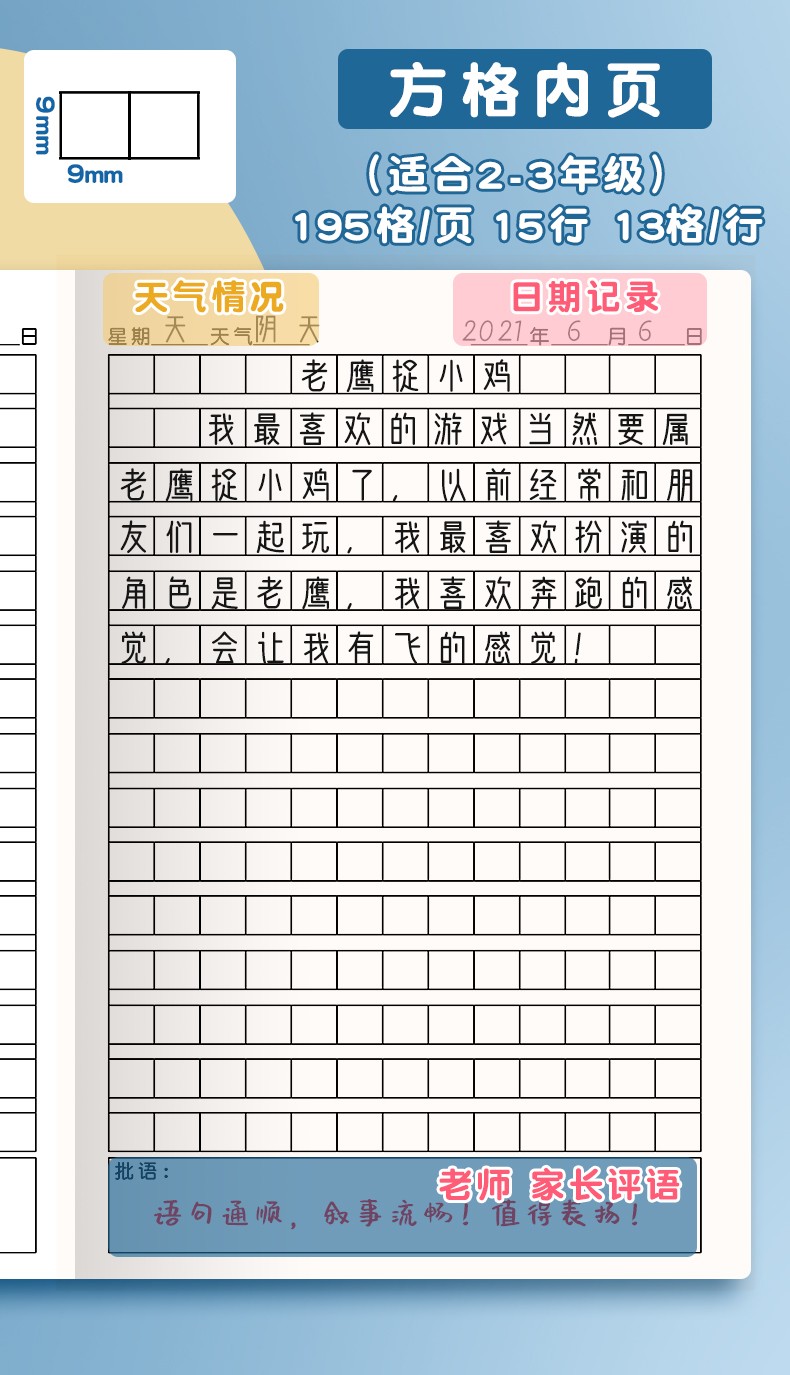 方格内页
9mm
9mm
（适合2-3年级）
195格/页 15行 13格/行
天气情况
日期记录
日
星期天 天气阴天
2021年6月6日
老鹰捉小鸡
我最喜欢的游戏当然要属
老鹰捉小鸡了，以前经常和朋
友们一起玩，我最喜欢扮演的
角色是老鹰，我喜欢奔跑的感
觉，会让我有飞的感觉！
批语：
老师 家长评语
语句通顺，叙事流畅！值得表扬！